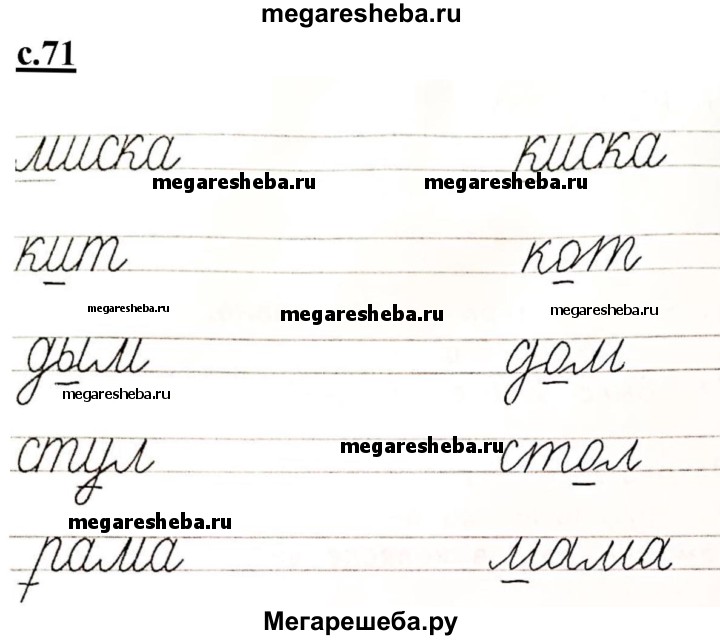 megaresheba.ru
с.71
миска киска
megaresheba.ru megaresheba.ru
кит кот
megaresheba.ru megaresheba.ru megaresheba.ru
дым дом
megaresheba.ru
стул стол
megaresheba.ru
рама мама
megaresheba.ru
Мегарешеба.ру